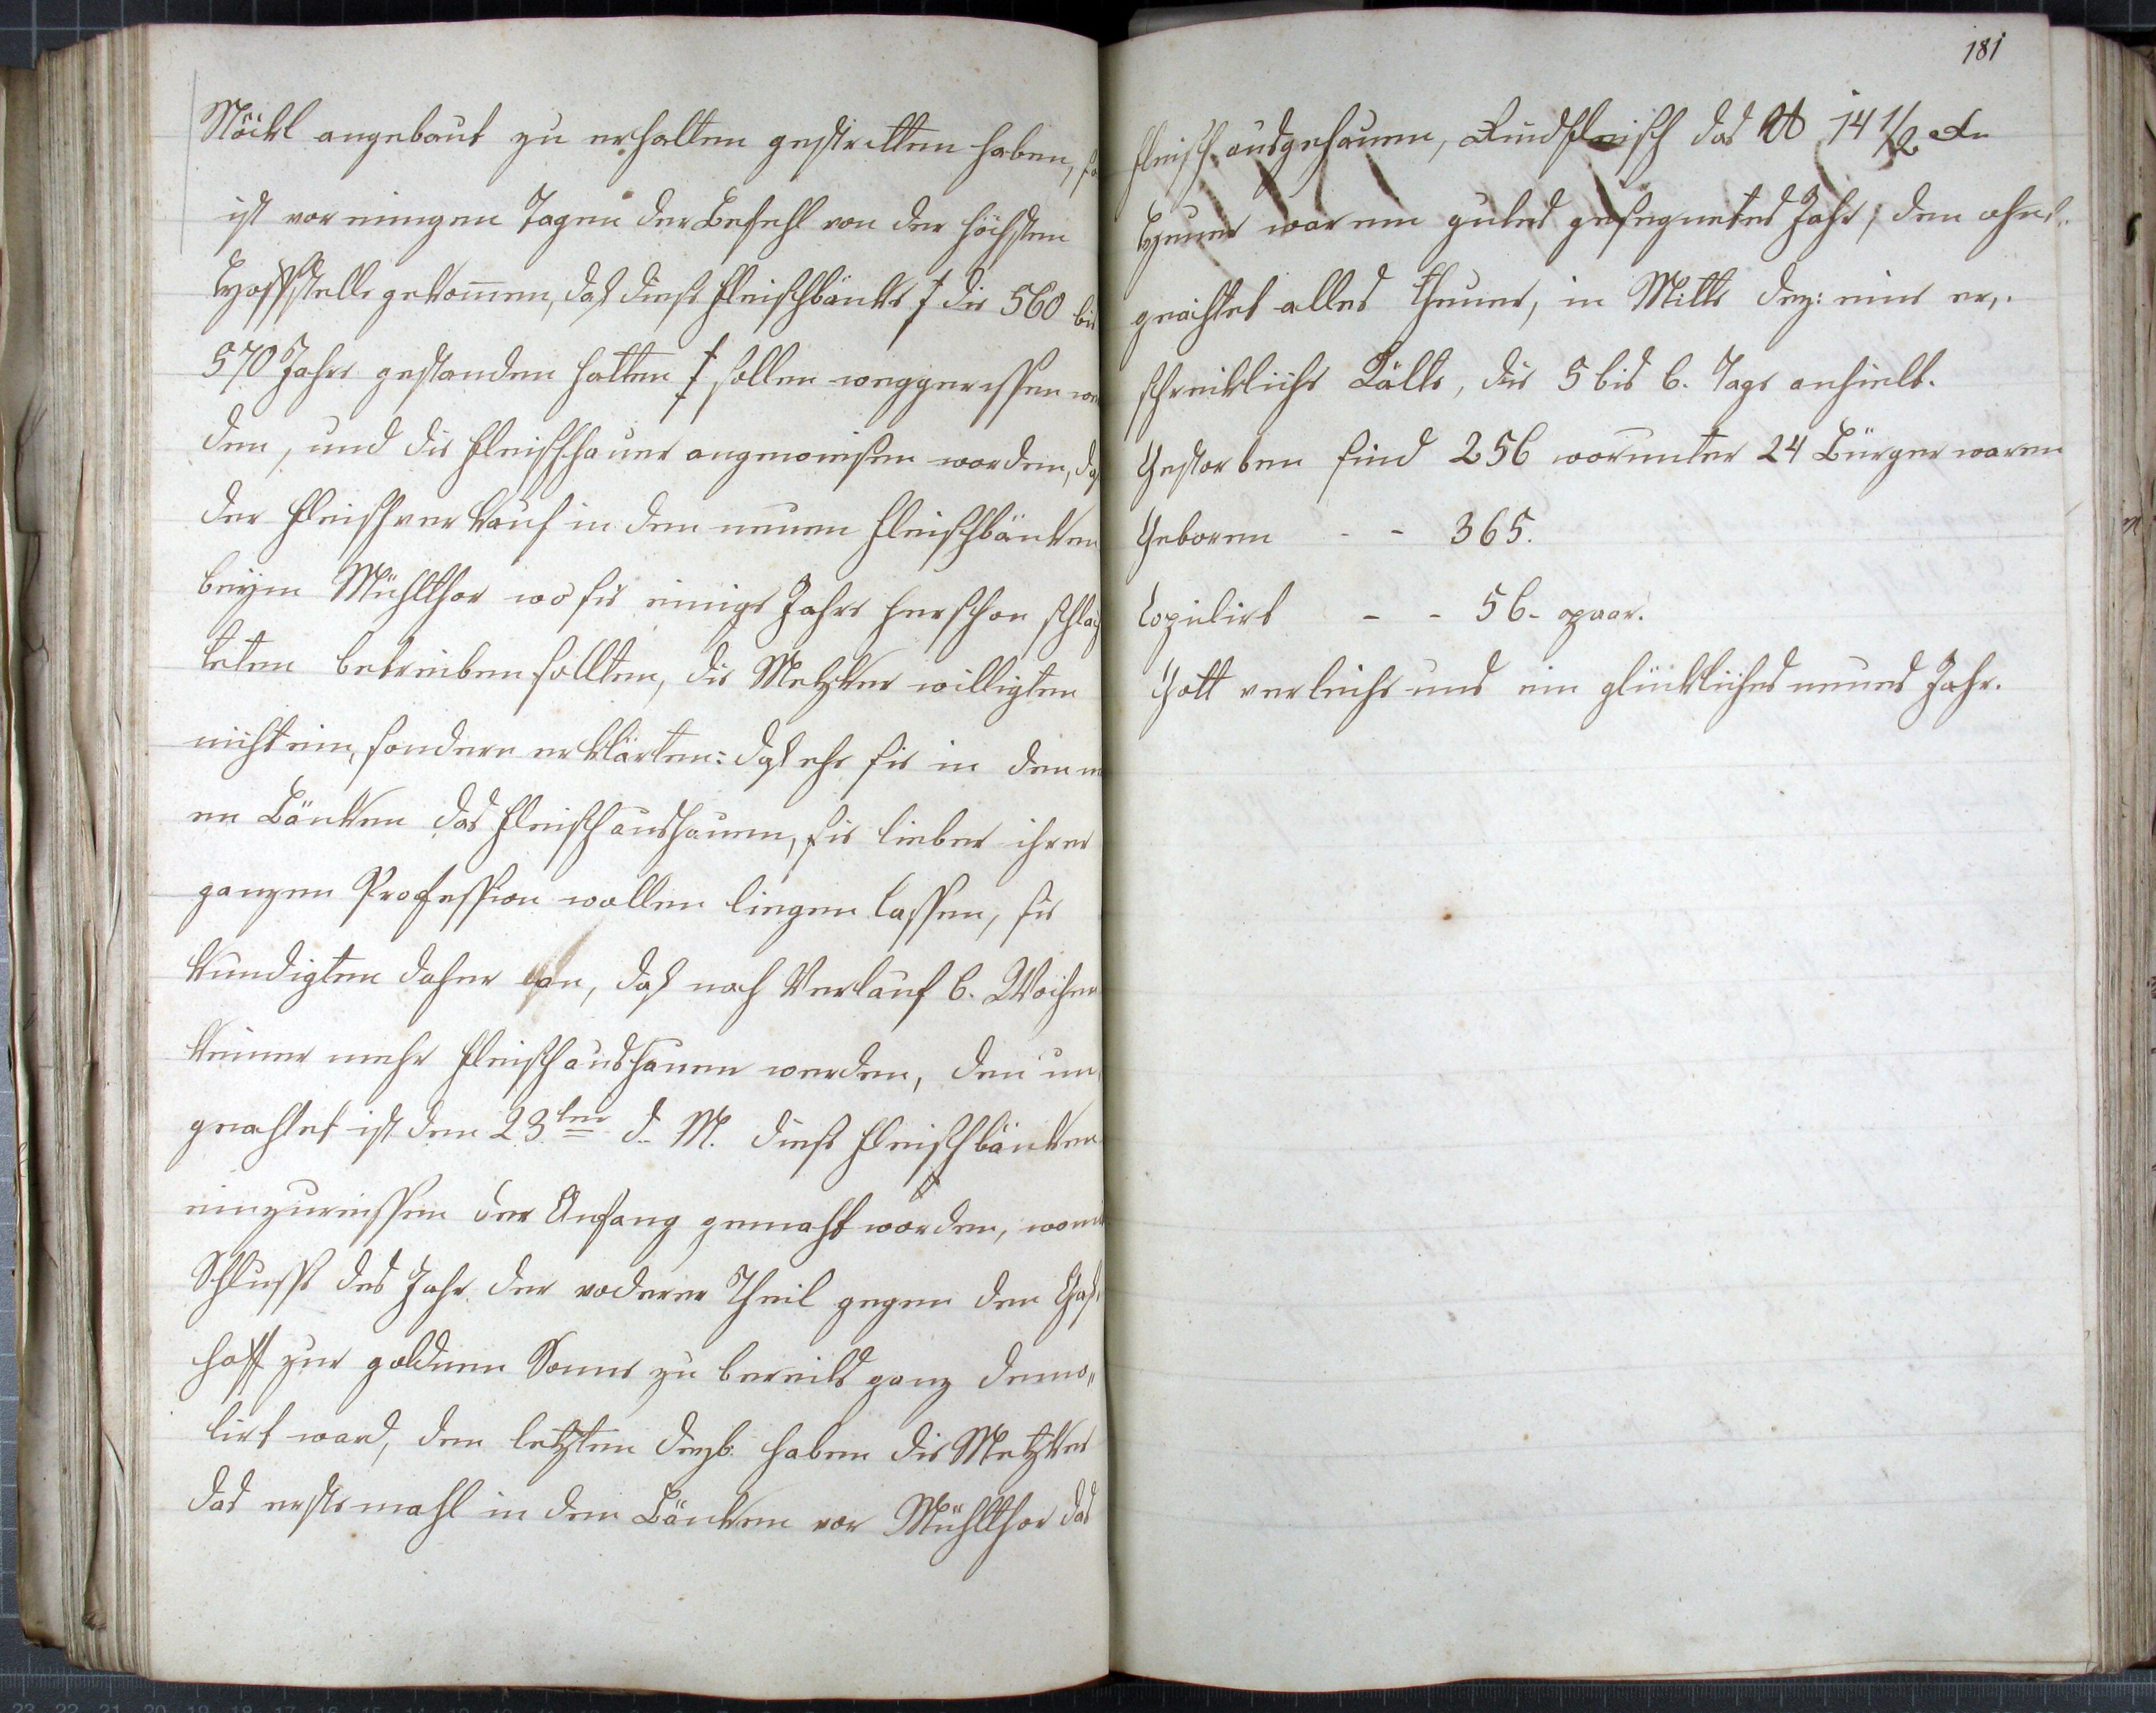 Stöckl angebaut zu erhalten gestritten haben, so
ist vor einigen Tagen der Befehl von der höchsten
Hoffstelle gekom̄en, daß diese Fleischbänke † die 560 bis
570 Jahre gestanden hatten † sollen weggerissen wer
den, und die Fleischhauer angewiesen worden, daß
der Fleischverkauf in den neuen Fleischbänken
beym Mühlthor wo sie einige Jahre her schon schlach
teten betreiben sollten, die Metzker willigten
nicht ein, sondern erklärten: daß ehe sie in den neu
en Bänken das Fleisch aushauen, sie lieber ihrer
ganzen Profession wollen liegen lassen, sie
kundigten daher an, daß nach Verlauf 6. Wochen
keiner mehr Fleisch aushauen werden, den un
geachtet ist den 23ten d. M. diese Fleischbänken
einzureissen der Anfang gemacht worden, wo
Schlusse des Jahr der voderer Theil gegen den Gast
hoff zur goldenen Sonne zu bereits ganz demo„
lirt ward, den letzten Dezb: haben die Metzker
das erstemahl in den Bänken vor Mühlthor das
181
Fleisch ausgehauen, Rindfleisch das ℔ 14 1/2 xr
Heuer war ein gutes gesegnetes Jahr, dem ohn
geachtet alles theuer, in Mitte Dez: eine er„
schreckliche Kälte, die 5 bis 6. Tage anhielt.
Gestorben sind 256 worunter 24 Bürger waren
Geboren - - 365.
Copulirt - - 56- paar.
Gott verleihe uns ein glückliches neues Jahr.